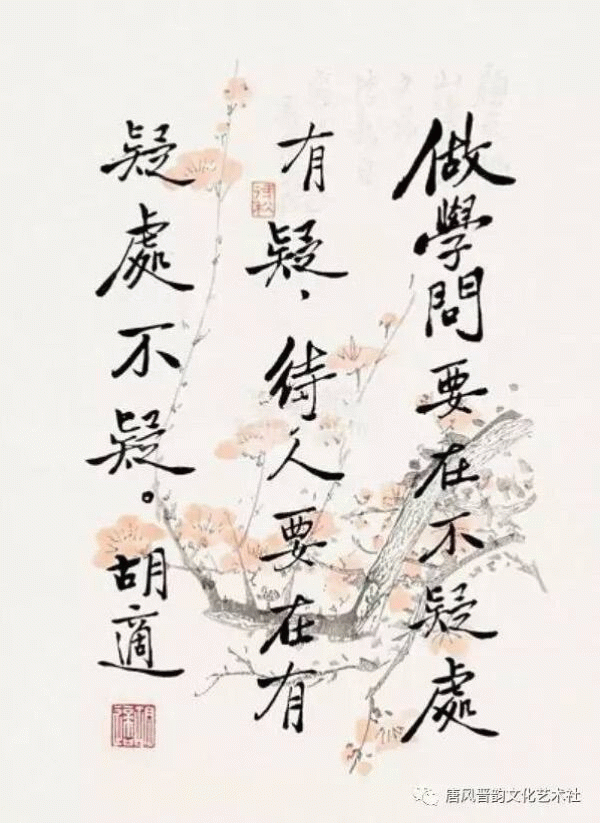 做學問要在不疑處
有疑，待人要在有
疑處不疑。胡適
唐风晋韵文化艺术社